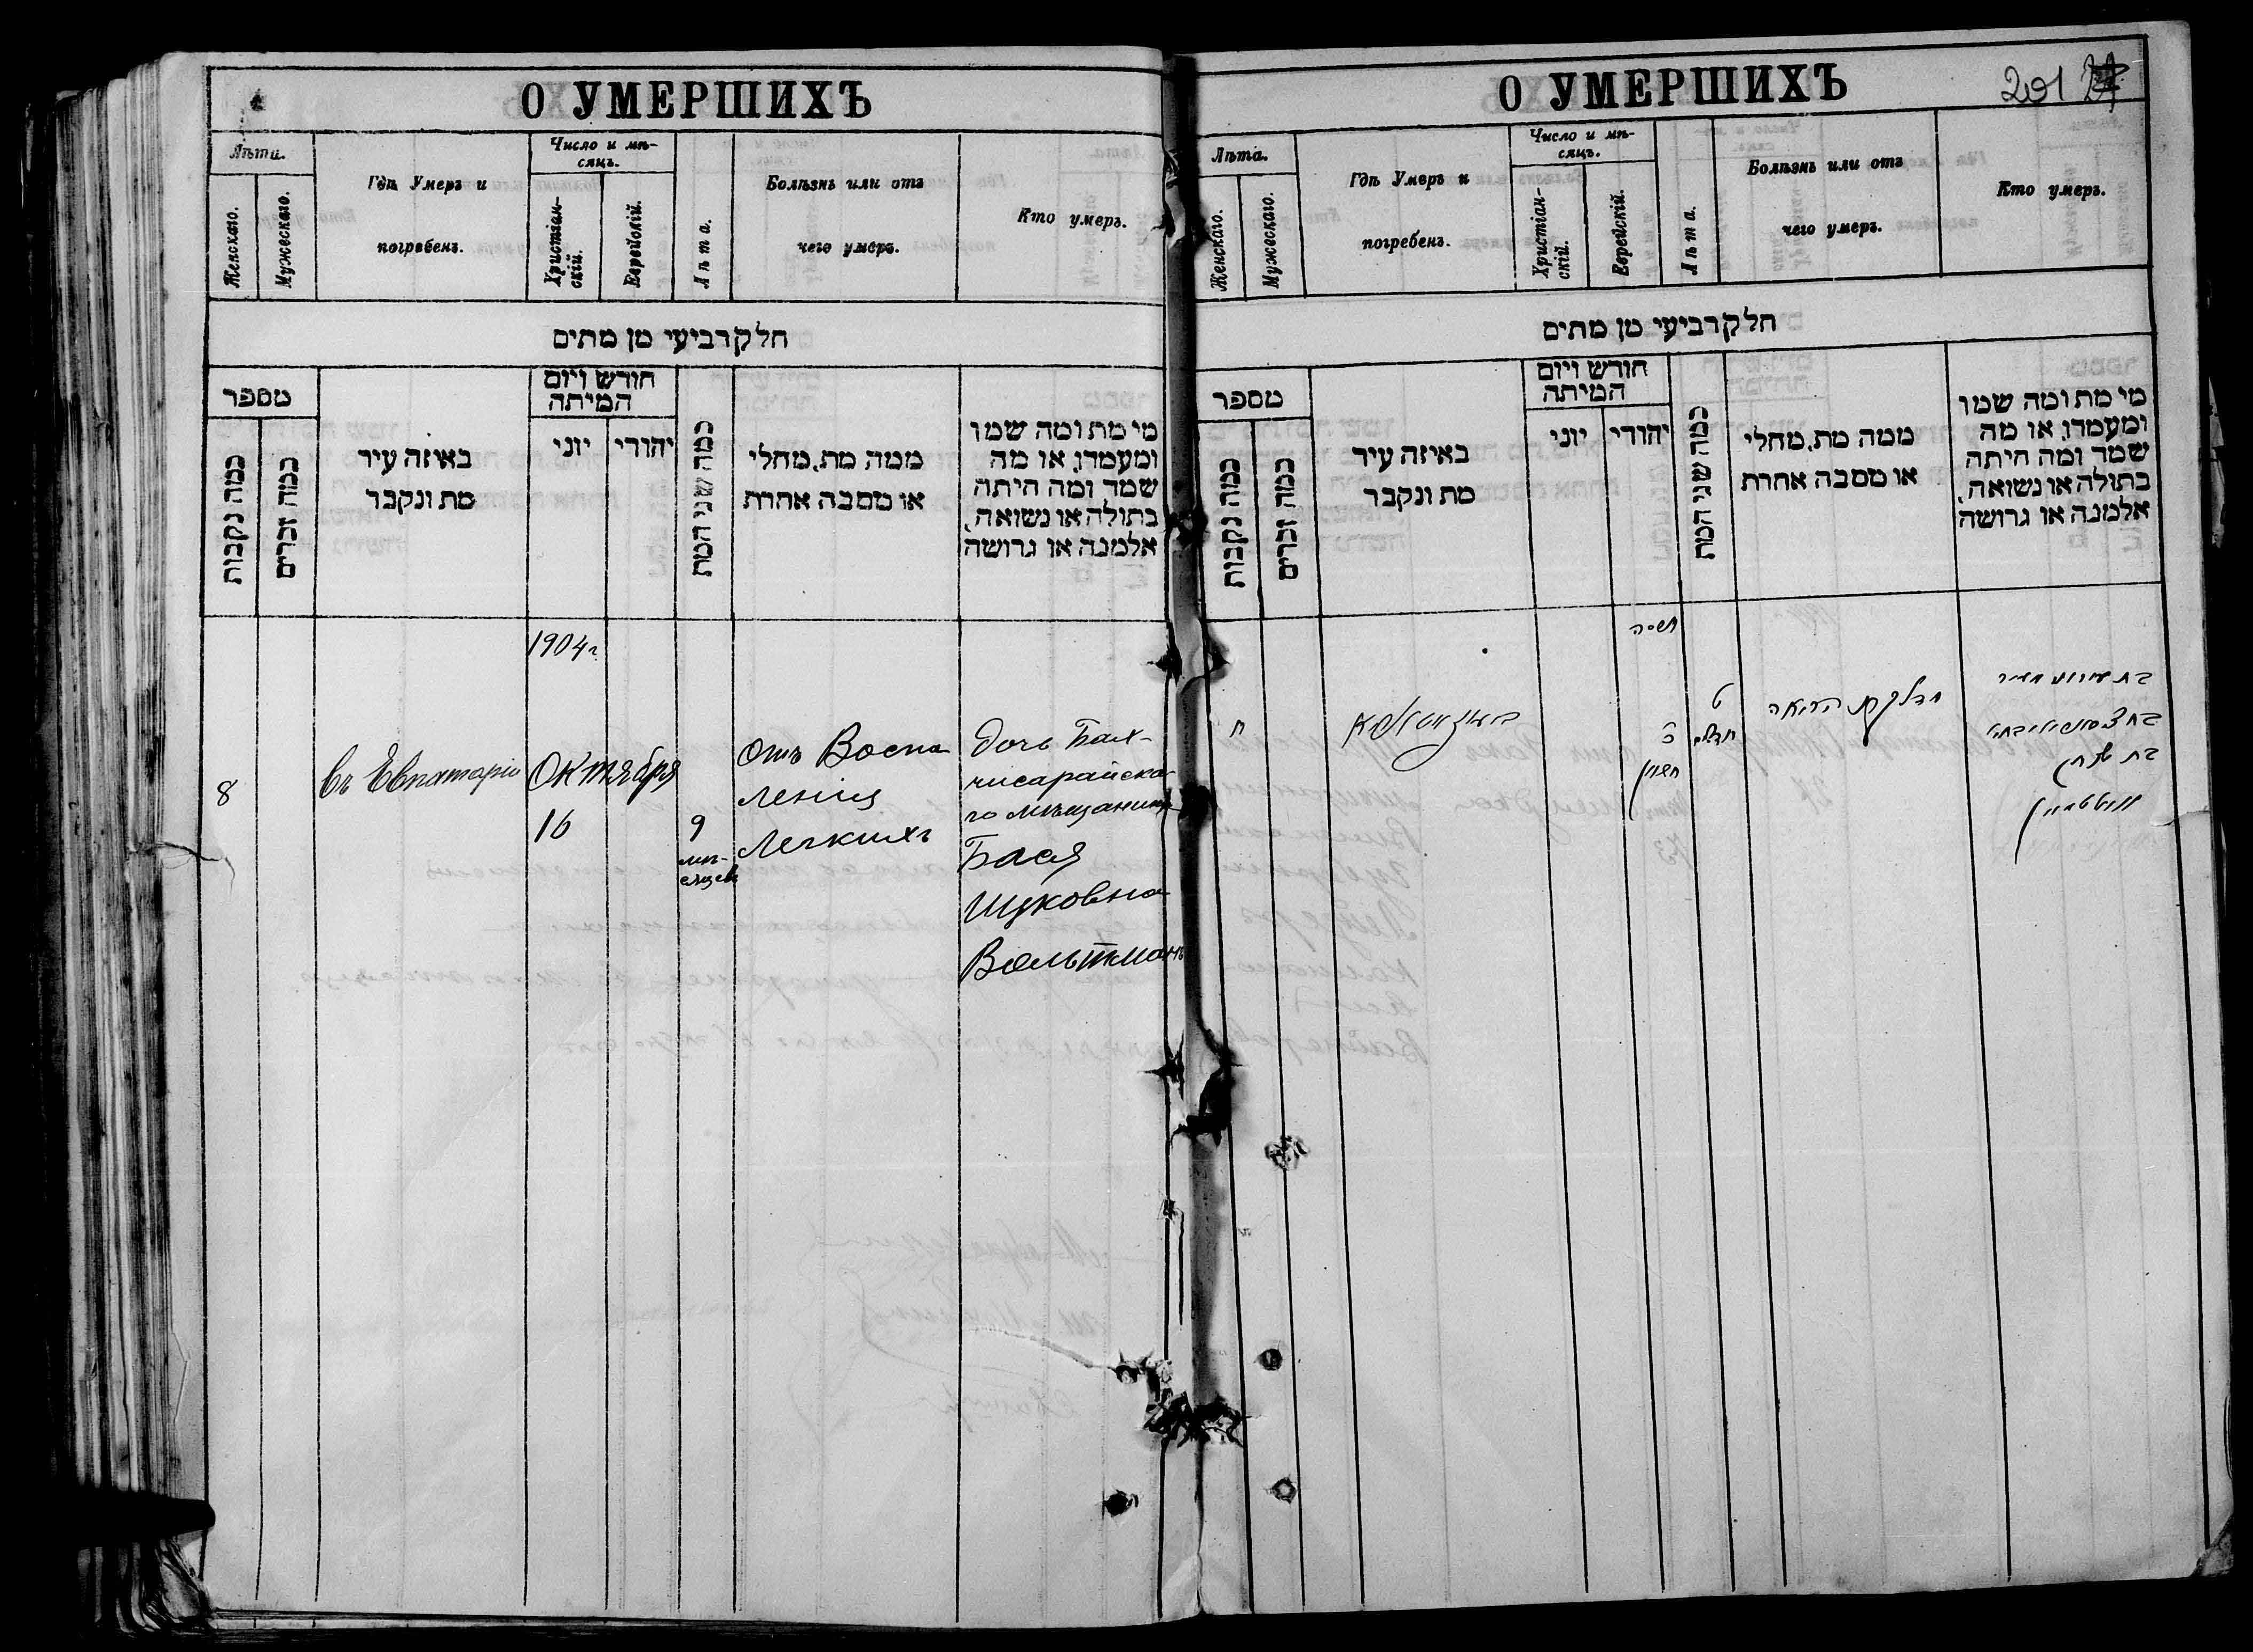 О УМЕРШИХЪ
Лѣта.
Женскаго.
Мужескаго.
Гдѣ Умеръ и
погребенъ.
Число и мѣ-
сяцъ.
Христіан-
скій.
Еврейскій.
Лѣта.
Болѣзнь или отъ
чего умеръ.
Кто умеръ.
חלק רביעי מן מתים
מספר
כמה נקבות
כמה זכרים
באיזה עיר
מת ונקבר
חודש ויום
המיתה
יוני
יהודי
כמה שני המת
ממה מת, מחלי
או מסבה אחרת
מי מת ומה שמו
ומעמדו, או מה
שמד ומה היתה
בתולה או נשואה,
אלמנה או גרושה
8
въ Евпаторіи
1904 г.
Октября
16
9
мѣ-
сяцевъ
отъ Воспа
ленія
Легкихъ
дочь Бах-
чисарайска-
го мѣщанина
Бася
Ицковна
Вольтманъ
О УМЕРШИХЪ
201
Лѣта.
Женскаго.
Мужескаго.
Гдѣ Умеръ и
погребенъ.
Число и мѣ-
сяцъ.
Христіан-
скій.
Еврейскій.
Лѣта.
Болѣзнь или отъ
чего умеръ.
Кто умеръ.
חלק רביעי מן מתים
מספר
כמה נקבות
כמה זכרים
באיזה עיר
מת ונקבר
חודש ויום
המיתה
יוני
יהודי
כמה שני המת
ממה מת, מחלי
או מסבה אחרת
מי מת ומה שמו
ומעמדו, או מה
שמד ומה היתה
בתולה או נשואה,
אלמנה או גרושה
ח
תרסה
חשון
ט
חדשים
הריאה
בת
בת יצחק